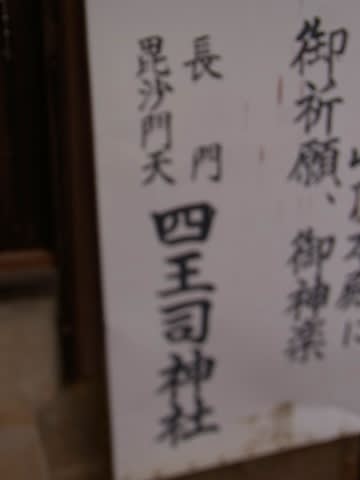 御祈願、御神楽
長門
毘沙門天
四王司神社